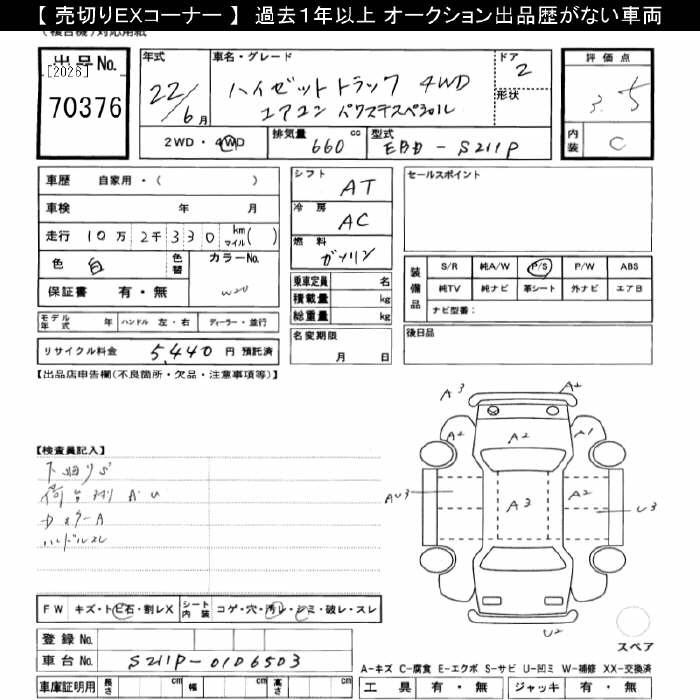 【 売切りEXコーナー 】 過去1年以上 オークション出品歴がない車両
出品No.
[2026]
70376
年式
22/6月
車名・グレード
ハイゼットトラック 4WD
エアコン パワステスペシャル
ドア
2
形状
評価点
3.5
内装
C
2WD・4WD
排気量 660 cc
型式 EBD-S211P
車歴 自家用・( )
車検 年 月
走行 10万2千330 km マイル( )
色 白
色替
カラーNo.
W20
保証書 有・無
モデル年式 年
ハンドル 左・右
ディーラー・並行
リサイクル料金 5,440 円 預託済
シフト
AT
冷房
AC
燃料
ガソリン
乗車定員 名
積載量 kg
総重量 kg
名変期限
月 日
セールスポイント
装備品
S/R 純A/W P/S P/W ABS
純TV 純ナビ 革シート 外ナビ エアB
ナビ型番:
後日品
【出品店申告欄(不良箇所・欠品・注意事項等)】
【検査員記入】
下廻りS
荷台 AU
ハンドルスレ
A3
A2
A2
A2
A1
AU3
A3
A2
U3
U2
FW キズ・トビ石・割レX
シート内装 コゲ・穴・汚レ・シミ・破レ・スレ
登録No.
車台No. S211P-0106503
車庫証明用 長さ cm 幅 cm 高さ cm
スペア
A-キズ C-腐食 E-エクボ S-サビ U-凹ミ W-補修 XX-交換済
工具 有・無 ジャッキ 有・無